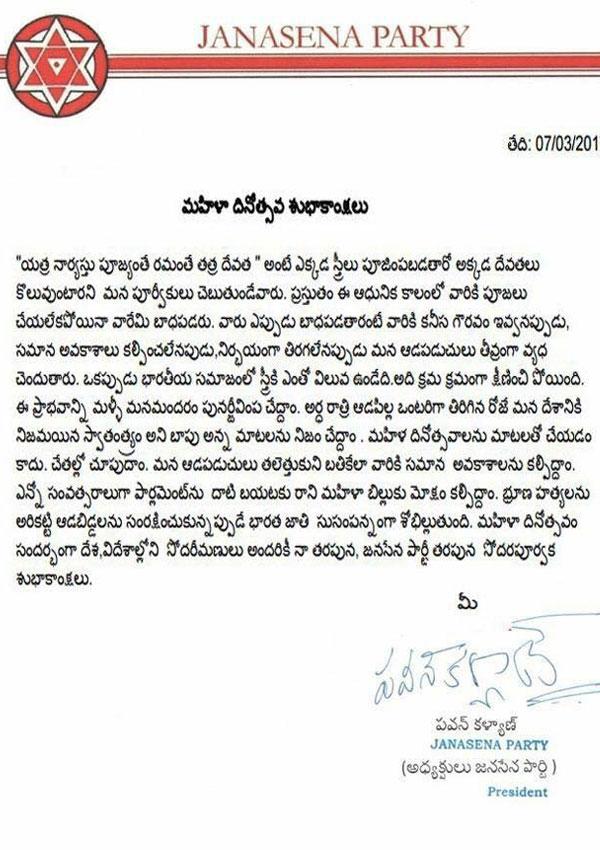 JANASENA PARTY
తేది: 07/03/201
మహిళా దినోత్సవ శుభాకాంక్షలు
"యత్ర నార్యస్తు పూజ్యంతే రమంతే తత్ర దేవత " అంటే ఎక్కడ స్త్రీలు పూజింపబడతారో అక్కడ దేవతలు
కొలువుంటారని మన పూర్వీకులు చెబుతుండేవారు. ప్రస్తుతం ఈ ఆధునిక కాలంలో వారికి పూజలు
చేయలేకపోయినా వారేమి బాధపడరు. వారు ఎప్పుడు బాధపడతారంటే వారికి కనీస గౌరవం ఇవ్వనప్పుడు,
సమాన అవకాశాలు కల్పించలేనపుడు,నిర్భయంగా తిరగలేనప్పుడు మన ఆడపడుచులు తీవ్రంగా వ్యధ
చెందుతారు. ఒకప్పుడు భారతీయ సమాజంలో స్త్రీకి ఎంతో విలువ ఉండేది.అది క్రమ క్రమంగా క్షీణించి పోయింది.
ఈ ప్రాభవాన్ని మళ్ళీ మనమందరం పునర్జీవింప చేద్దాం. అర్ధ రాత్రి ఆడపిల్ల ఒంటరిగా తిరిగిన రోజే మన దేశానికి
నిజమయిన స్వాతంత్ర్యం అని బాపు అన్న మాటలను నిజం చేద్దాం . మహిళ దినోత్సవాలను మాటలతో చేయడం
కాదు. చేతల్లో చూపుదాం. మన ఆడపడుచులు తలెత్తుకుని బతికేలా వారికి సమాన అవకాశాలను కల్పిద్దాం.
ఎన్నో సంవత్సరాలుగా పార్లమెంట్‌ను దాటి బయటకు రాని మహిళా బిల్లుకు మోక్షం కల్పిద్దాం. భ్రూణ హత్యలను
అరికట్టి ఆడబిడ్డలను సంరక్షించుకున్నప్పుడే భారత జాతి సుసంపన్నంగా శోభిల్లుతుంది. మహిళా దినోత్సవం
సందర్భంగా దేశ,విదేశాల్లోని సోదరీమణులు అందరికీ నా తరపున, జనసేన పార్టీ తరపున సోదరపూర్వక
శుభాకాంక్షలు.
మీ
పవన్ కళ్యాణ్
పవన్ కళ్యాణ్
JANASENA PARTY
(అధ్యక్షులు జనసేన పార్టీ )
President